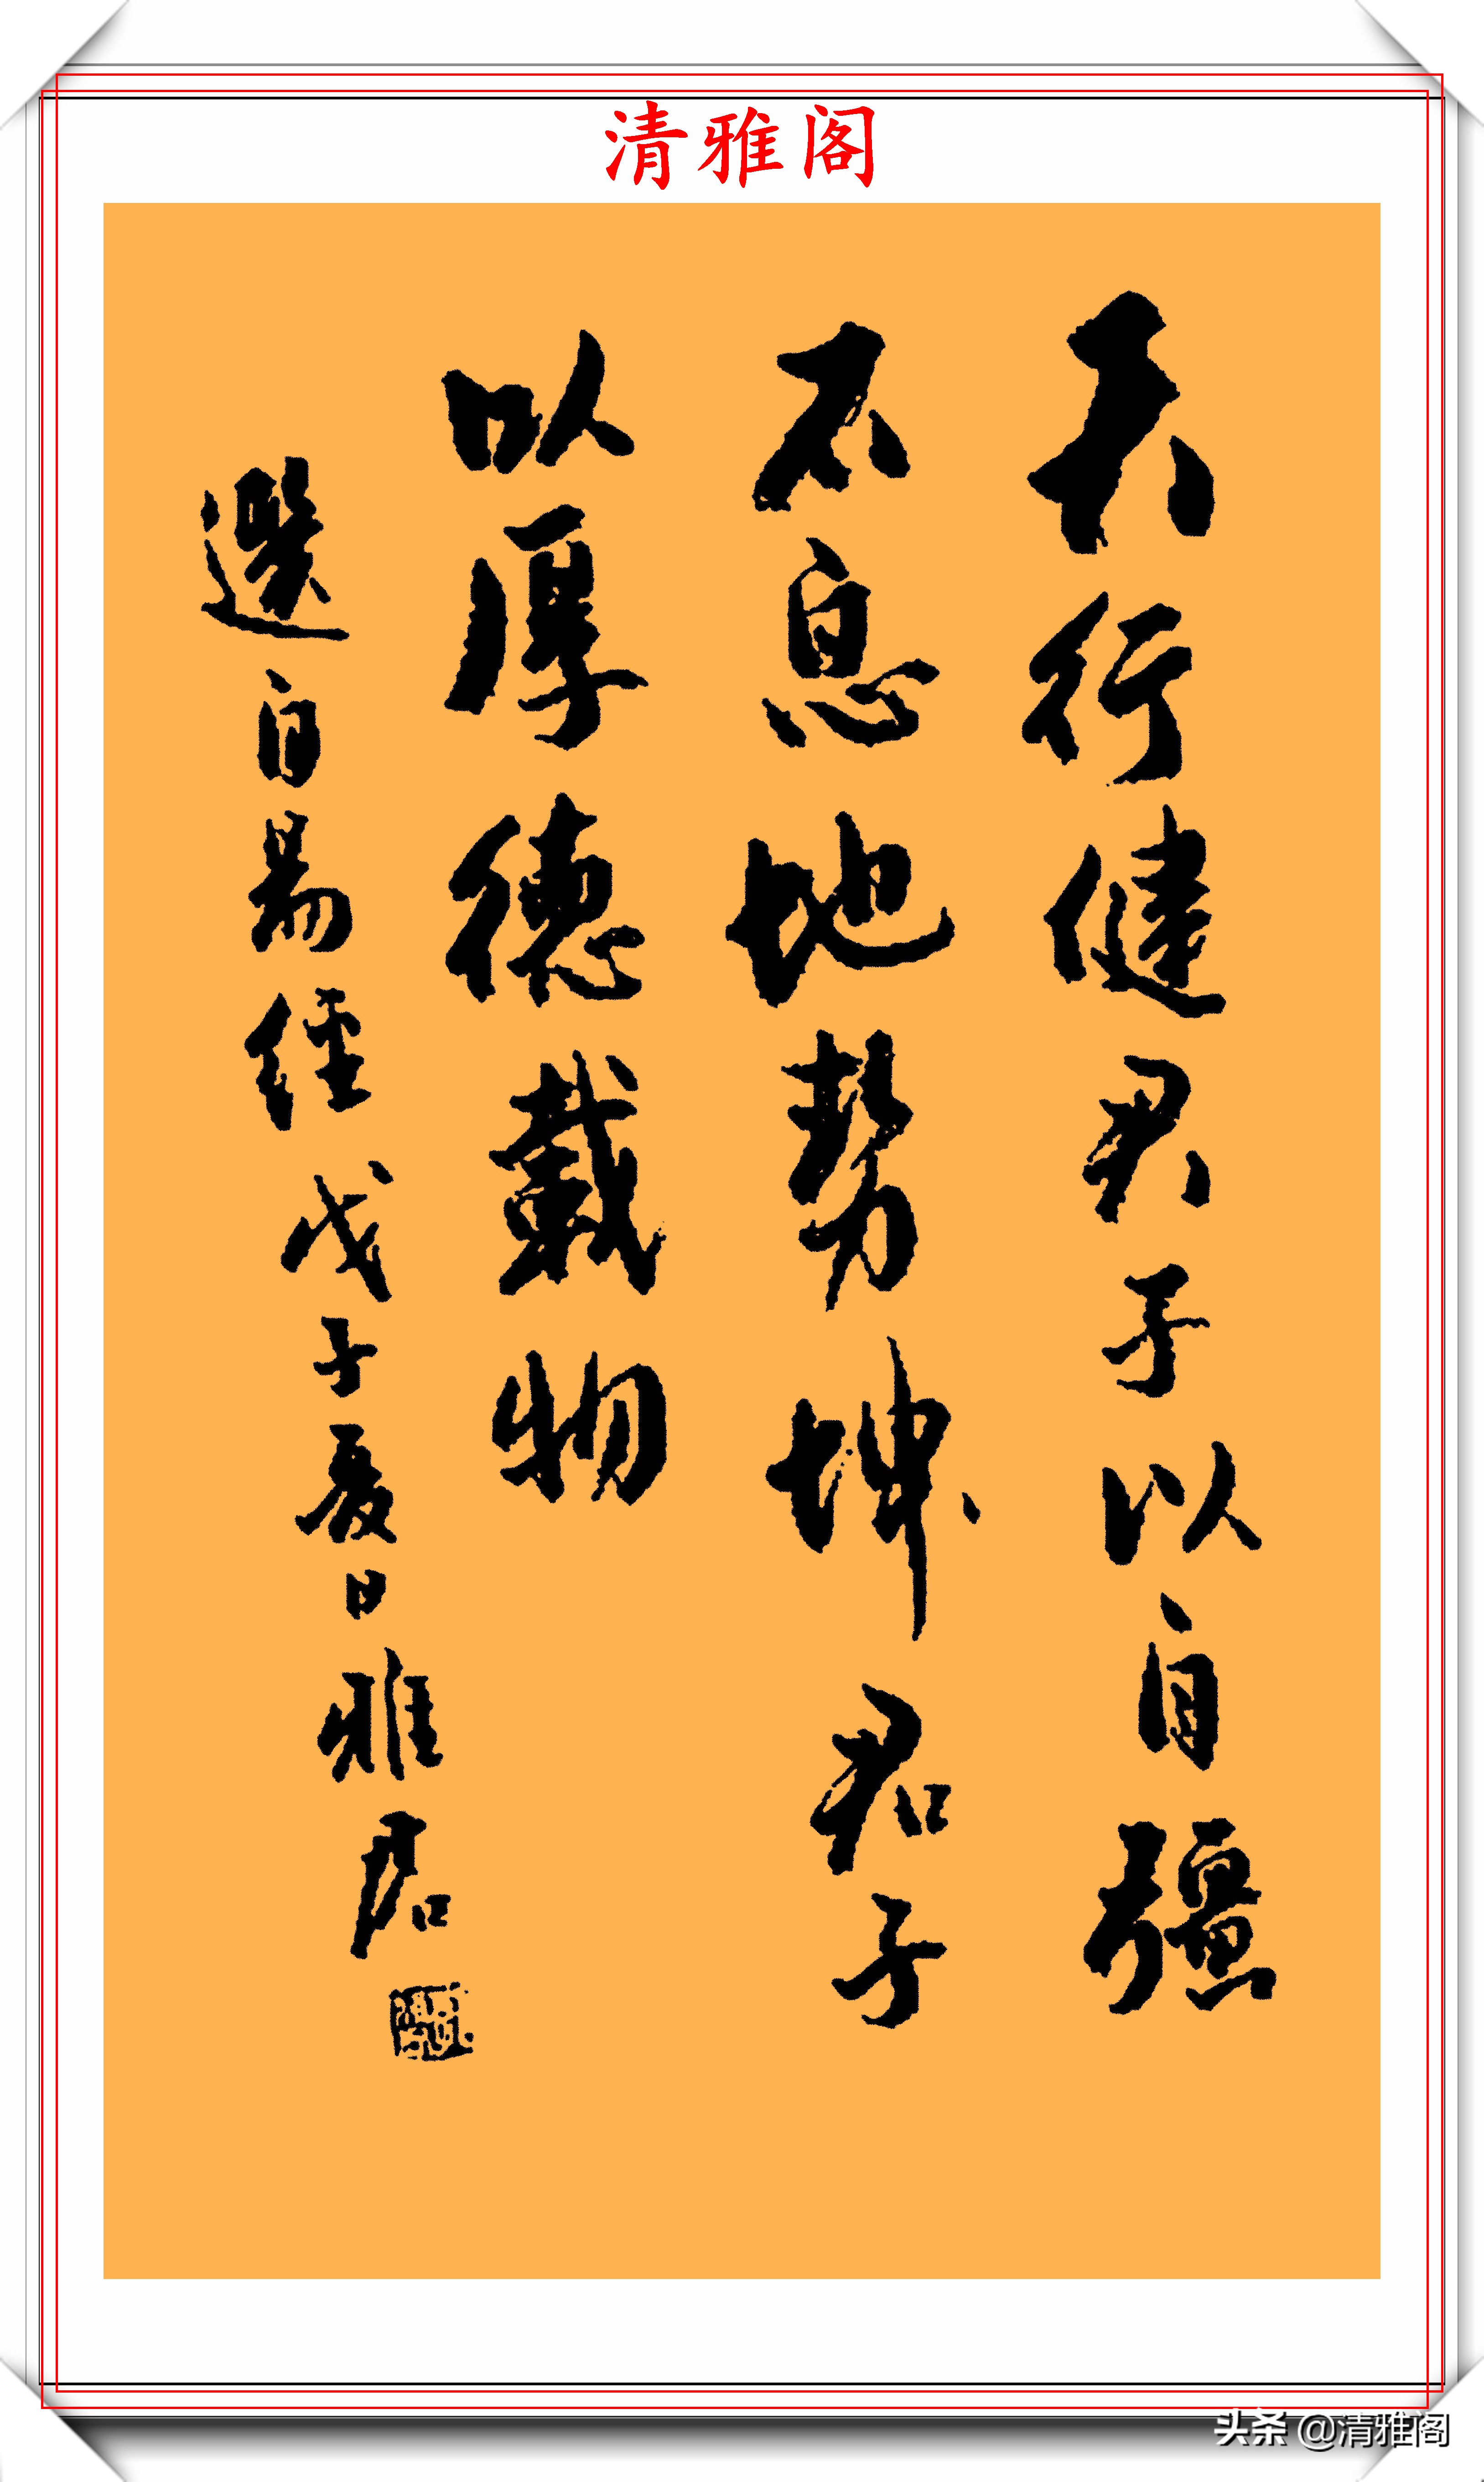 清雅阁
天行健君子以自彊
不息地势坤君子
以厚德载物
選自易經戊子夏日雅君
头条 @清雅阁